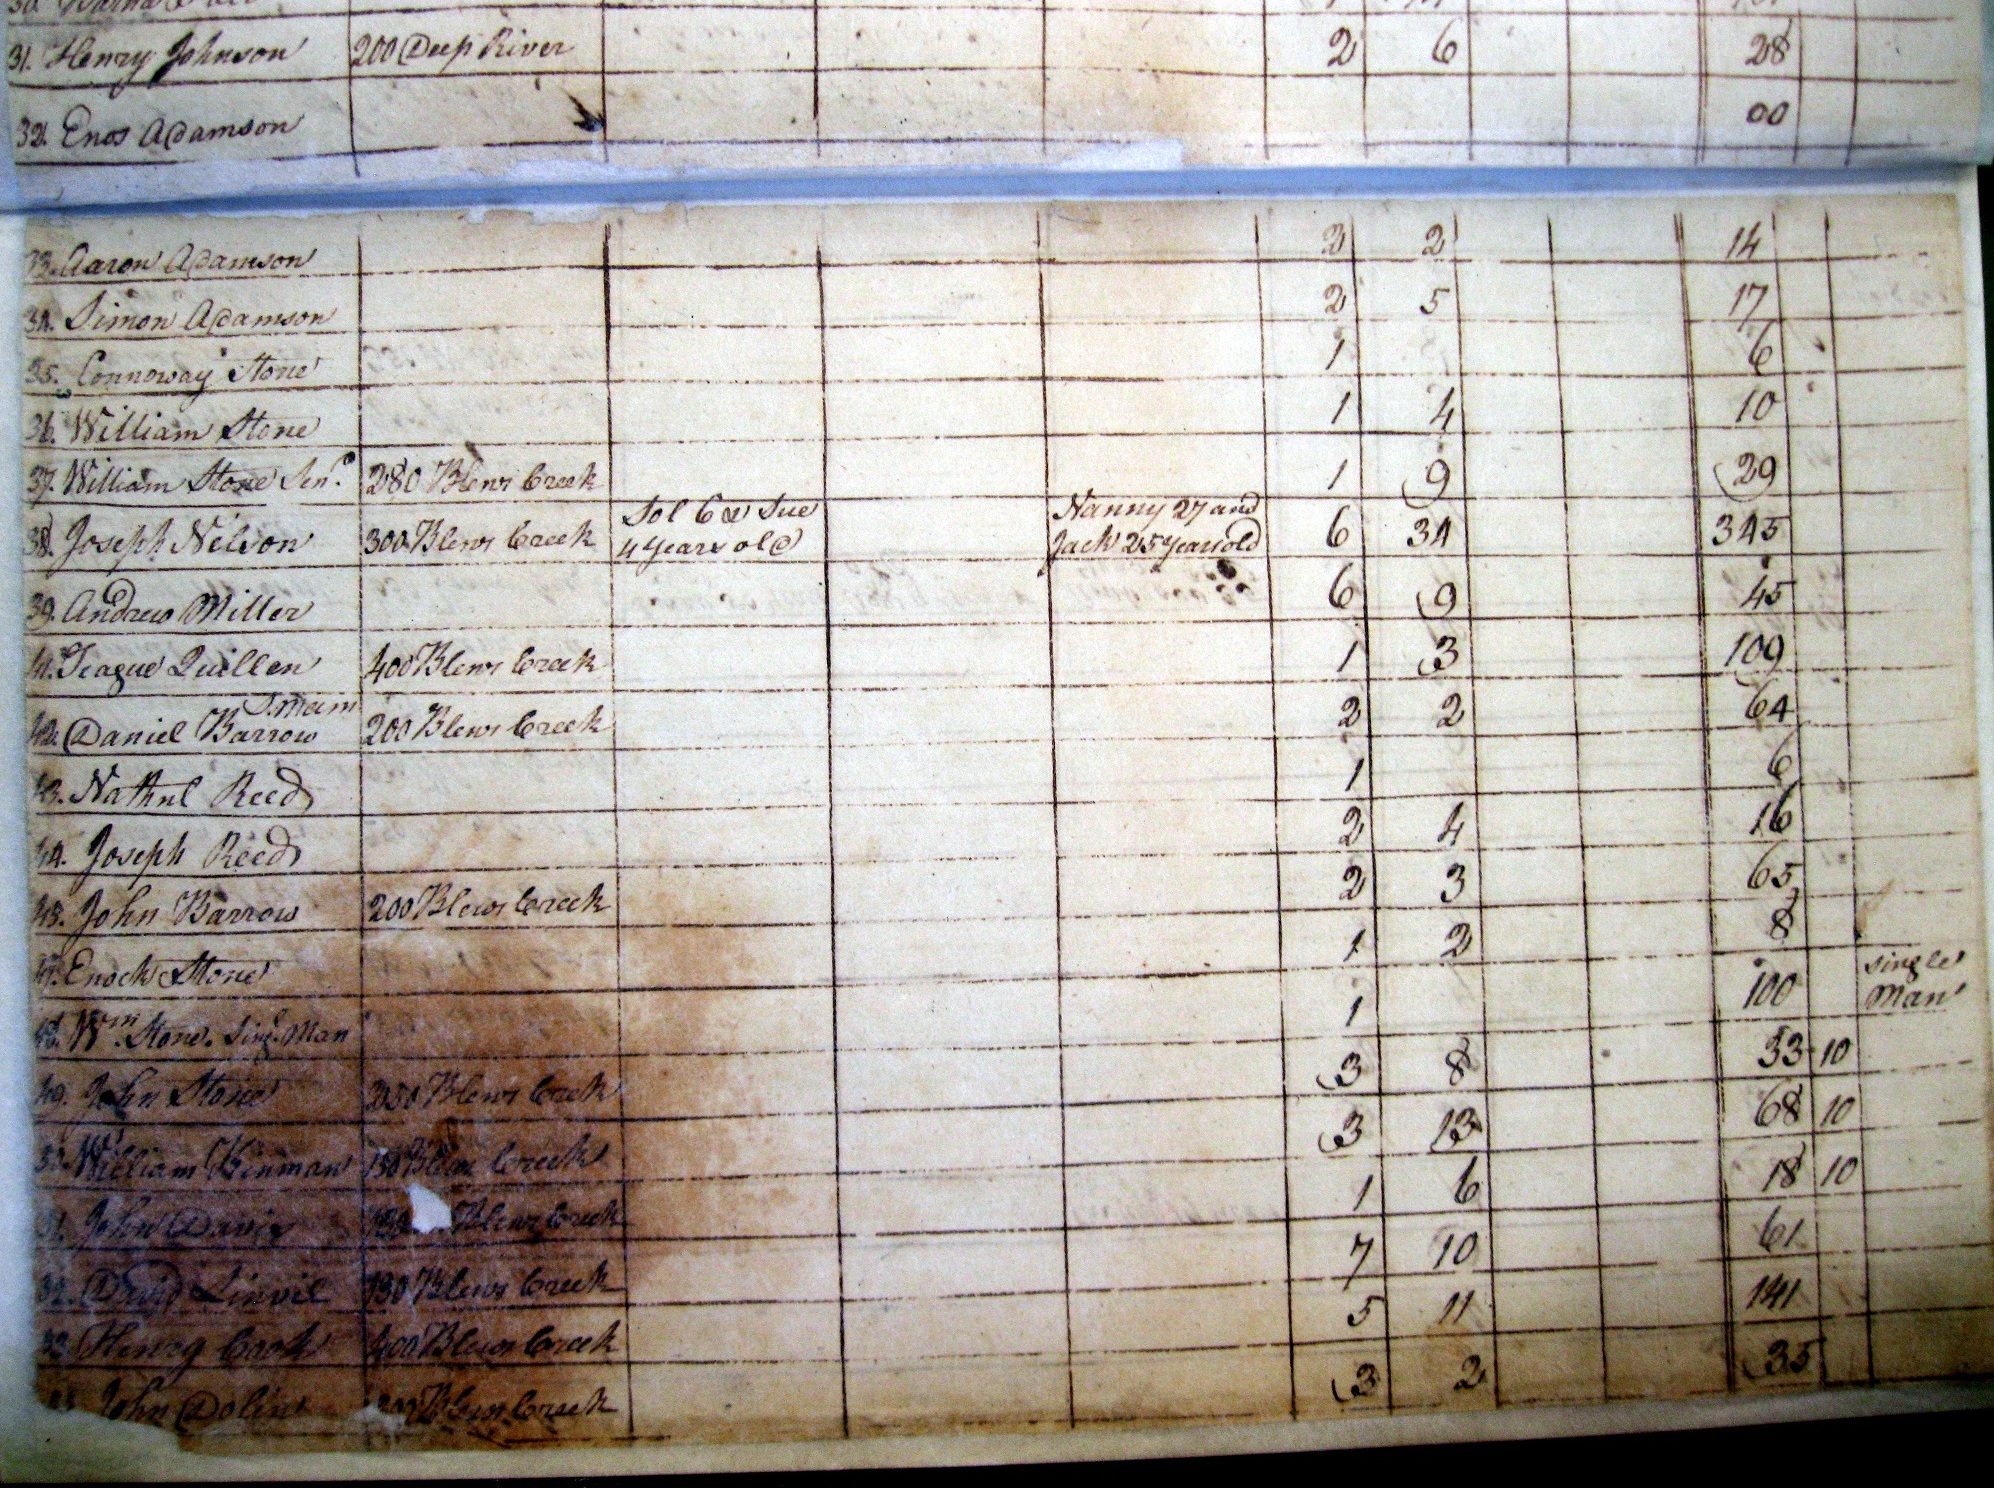 31. Henry Johnson 200 Deep River 2 6 28
32. Enos Adamson 00
33. Aaron Adamson 2 2 14
34. Simon Adamson 2 5 17
35. Connoway Stone 1 6
36. William Stone 1 4 10
37. William Stone Senr. 280 Blews Creek 1 9 29
38. Joseph Nelson 300 Blews Creek Sol 6 & Sue 4 Years old Nanny 27 and Jack 25 Years old 6 34 345
39. Andrew Miller 6 9 45
41. Teague Quillen 400 Blews Creek 1 3 109
42. Daniel Barrow 200 Blews Creek 2 2 64
43. Nathnl Reed 1 6
44. Joseph Reed 2 4 16
45. John Barrow 200 Blews Creek 2 3 65
47. Enock Stone 1 2 8
48. Wm. Stone. Singe. Man 1 100 single Man
49. John Stone 350 Blews Creek 3 8 33 10
50. William Hinman 150 Blews Creek 3 13 68 10
51. John Davis Blews Creek 1 6 18 10
52. David Linvil 130 Blews Creek 7 10 61
53. Henry Cook 400 Blews Creek 5 11 141
John Dolin 200 Blews Creek 3 2 35